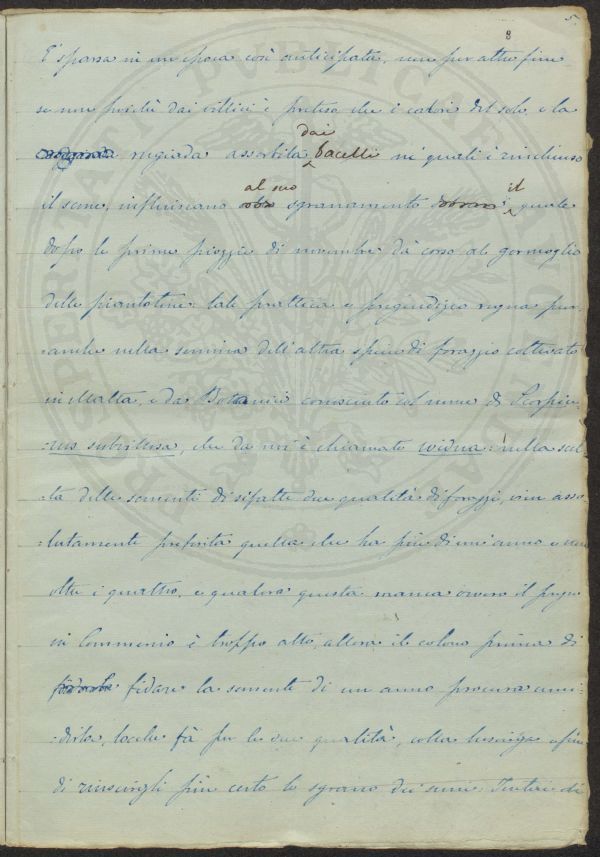 5.
8
È sparsa in un epoca così anticipata, non per altro fine
se non perchè dai villici è preteso che i calori del sole e la
rugiada assorbita dai bacelli ne' quali è rinchiuso
il seme, influiscano al suo sgranamento il quale
dopo le prime pioggie di novembre dà corso al germoglio
delle piantoline: tale prattica e pregiudizio regna pur
-anche nella semina dell'altra specie di foraggio coltivato
in Malta, e da Bottanici conosciuto col nome di Scorpiu-
-rus subvillosa, che da noi è chiamato widna: nella scel-
-ta delle sementi di sifatte due qualità di foraggi, vien asso-
-lutamente preferita quella che ha più di un'anno e non
oltre i quattro, e qualora questa manca ovvero il prezzo
in Commercio è troppo alto, allora il colono prima di
fidare la semente di un anno procura umi-
-dirla, locchè fà per le due qualità, colla lusinga
di riuscirgli più certo lo sgrano dei semi.